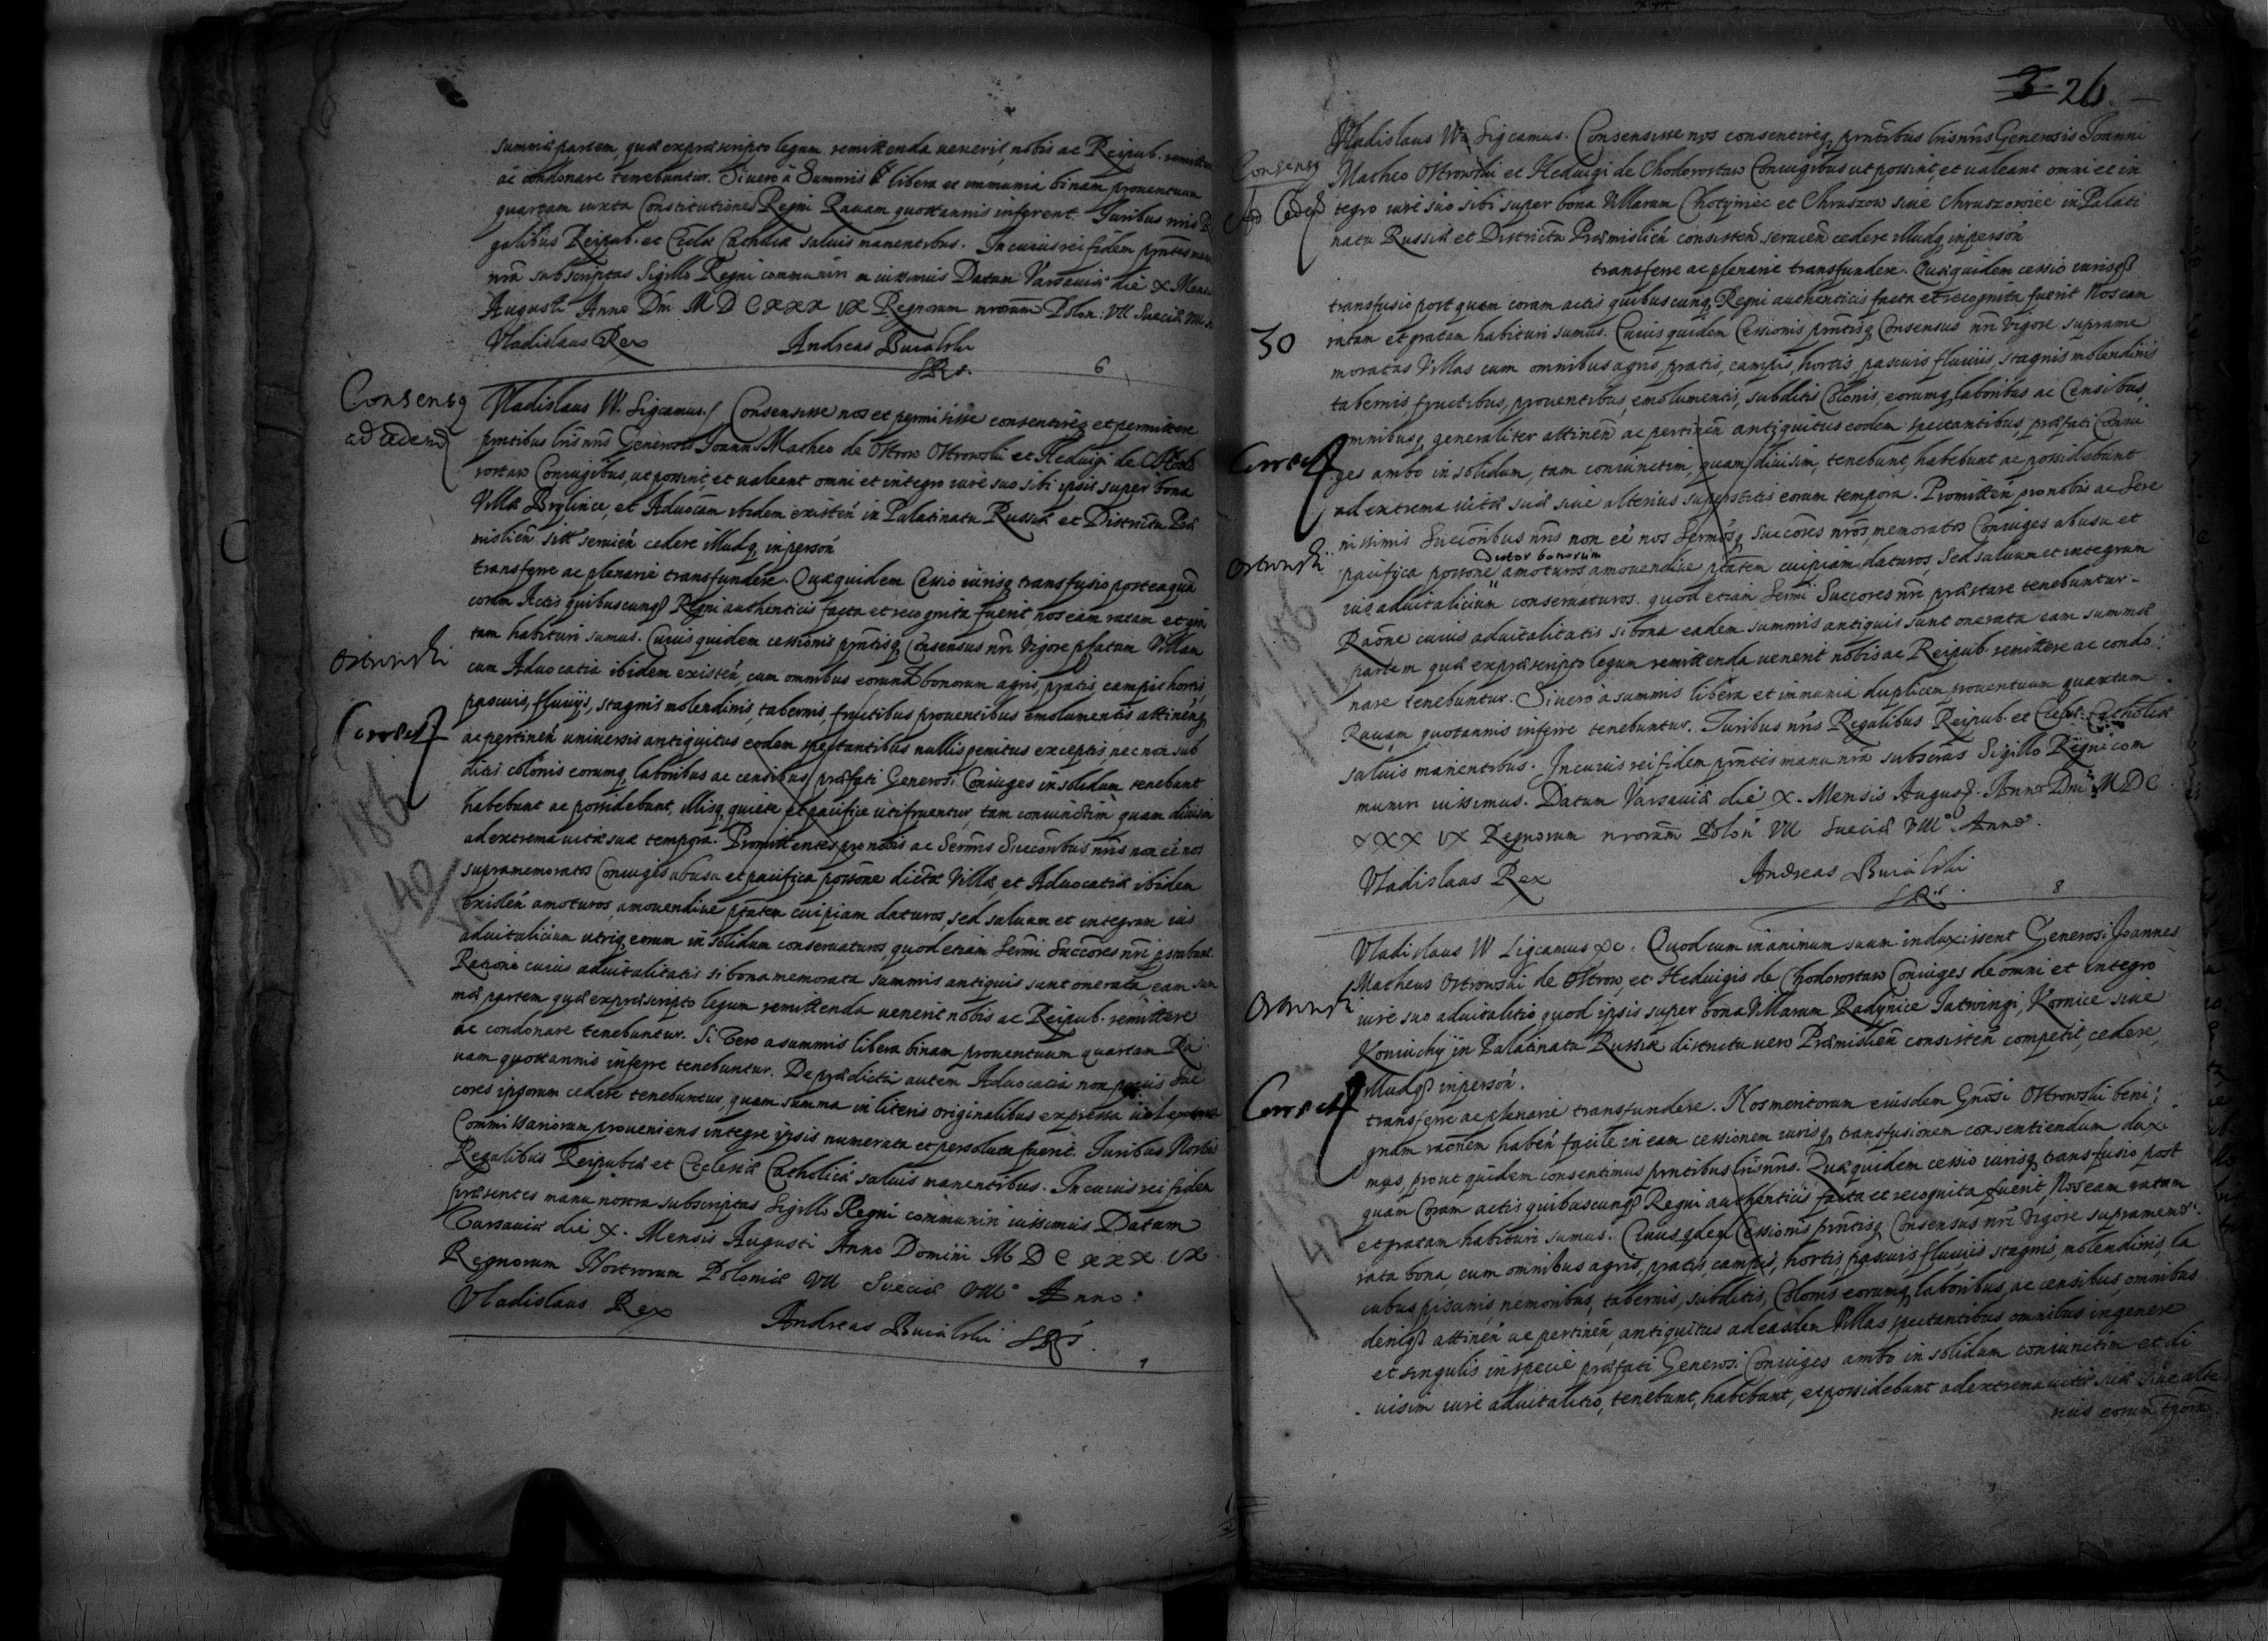 summæ partem, quæ ex præscripto legum remittenda uenerit, nobis ac Reipub. remittere
ac condonare tenebuntur. Si uero à Summis libera et immunia binam prouentuum
quartam iuxta Constitutiones Regni Rauam quottannis inferent. Iuribus nris
galibus Reipub. et Cclæ Catholicæ saluis manentibus. In cuius rei fidem pntes manu
nra subscriptas Sigillo Regni communiri iussimus Datum Varsauiæ die X Mensis
Augusti Anno Dni MDCXXXIX Regnorum nrorum Polon: VII Sueciæ VIII
Vladislaus Rex Andreas Buialski
SRS. 6
Consensq
ad cedend
Vladislaus IV. Sigcamus. Consensisse nos et permisisse consentireq et permittere
pntibus lris nris Generosis Joanni Matheo de Ostrow Ostrowski et Heduigi de Chodo
rostaw Coniugibus, ut possint, et ualeant omni et integro iure suo sibi ipsis super bona
Villæ Brylince, et Aduocam ibidem existen in Palatinatu Russiæ et Districtu Præ
mislien sitt seruien cedere illudq in person
transferre ac plenarie transfundere. Quæquidem Cessio iurisq transfusio posteaquã
coram Actis quibuscunq Regni authenticis facta et recognita fuerit, nos eam ratam et gra
tam habituri sumus. Cuius quidem cessionis pntisq Consensus nri Vigore pfatam Villam
Ostrowski
cum Aduocatia ibidem existen, cum omnibus eorund bonorum agris, pratis, campis hortis,
pascuis, fluuijs, stagnis molendinis, tabernis, fructibus prouentibus emolumentis attinenq
Correct
ac pertinen uniuersis antiquitus eodem spectantibus nullis penitus exceptis, nec non sub
ditis colonis eorumq laboribus ac censibus præfati Generosi Coniuges in solidum tenebunt
habebunt ac possidebunt, illisq quiete et pacifice utifruentur, tam coniunctim quam diuisim
186
ad extrema uitæ suæ tempora. Promittentes pro nobis ac Sermis Succoribus nris non ee nos
supramemoratos Coniuges ab usu et pacifica possone dictæ Villæ, et Aduocatiæ ibidem
existen amoturos, amouendiue ptatem cuipiam daturos, sed saluum et integrum ius
aduitalicium utriq eorum in solidum conseruaturos, quod etiam Sermi Succores nri pstabunt.
Ratione cuius aduitalitatis si bona memorata summis antiquis sunt onerata eam sum
mæ partem quæ ex præscripto legum remittenda uenerit nobis ac Reipub. remittere
ac condonare tenebuntur. Si Vero a summis libera binam prouentuum quartam Ra
uam quottannis inferre tenebuntur. De prædicta autem Aduocatia non prius Suc
cores ipsorum cedere tenebuntur, quam summa in literis originalibus expressa
Commissariorum proueniens integre ipsis numerata et persoluta fuerit. Iuribus Nostris
Regalibus Reipublicæ et Ecclesiæ Catholicæ saluis manentibus. In cuius rei fidem
præsentes manu nostra subscriptas Sigillo Regni communiri iussimus Datum
Varsauiæ die X. Mensis Augusti Anno Domini MDCXXXIX.
Regnorum Nostrorum Poloniæ VII Sueciæ VIII° Anno.
Vladislaus Rex Andreas Buialski SRS.
26
Vladislaus IV Sigcamus. Consensisse nos consentireq pntibus lris nris Generosis Joanni
Consensq
ad Cedend
Matheo Ostrowski et Heduigi de Chodorostaw Coniugibus ut possint, et ualeant omni et in
tegro iure suo sibi super bona Villarum Chotyniec et Chruszow siue Chruszowice in Palati
natu Russiæ et Districtu Præmislien consisten seruien cedere illudq in person
transferre ac plenarie transfundere. Quæquidem cessio iurisq
transfusio postquam coram actis quibuscunq Regni authenticis facta et recognita fuerit Nos eam
30
ratam et gratam habituri sumus. Cuius quidem Cessionis pntisq Consensus nri Vigore suprame
moratas Villas cum omnibus agris, pratis, campis, hortis, pascuis fluuiis, stagnis molendinis
tabernis, fructibus, prouentibus, emolumentis, subditis Colonis, eorumq laboribus ac Censibus,
omnibusq generaliter attinen ac pertinen antiquitus eodem spectantibus, præfati Coniu
Correct
ges ambo in solidum, tam coniunctim, quam diuisim, tenebunt, habebunt ac possidebunt
ad extrema uitæ suæ siue alterius superstitis eorum tempora. Promitten pro nobis ac Sere
nissimis Succoribus nris non ee nos Sermosq Succores nros memoratos Coniuges ab usu et
Ostrowski
dictor bonorum
pacifica possone amoturos amouendiue ptatem cuipiam daturos, sed saluum et integrum
ius aduitalicium conseruaturos. quod etiam Sermi Succores nri præstare tenebuntur.
Raone cuius aduitalitatis si bona eadem summis antiquis sunt onerata eam summæ
partem quæ ex præscripto legum remittenda uenerit nobis ac Reipub. remittere ac condo
nare tenebuntur. Si uero à summis libera et immunia duplicem prouentuum quartam
Rauam quotannis inferre tenebuntur. Iuribus nris Regalibus Reipub. et Cclæ Catholicæ
saluis manentibus. In cuius rei fidem pntes manu nra subscras Sigillo Regni com
muniri iussimus. Datum Varsauiæ die X. Mensis August. Anno Dni MDC
XXXIX Regnorum nrorum Polon VII Sueciæ VIII° Anno.
Vladislaus Rex Andreas Buialski
SRS. 8
Vladislaus IV Sigcamus &c. Quod cum in animum suum induxissent Generosi Joannes
Matheus Ostrowski de Ostrow, et Heduigis de Chodorostaw Coniuges de omni et integro
Ostrowski
iure suo aduitalitio quod ipsis super bona Villarum Radynice Jatwingi, Kornice siue
Koniuchy in Palatinatu Russiæ districtu uero Præmislien consisten competit, cedere,
illudq in person.
Correct
transferre ac plenarie transfundere. Nos meritorum eiusdem Gnosi Ostrowski beni
gnam raonem haben facile in eam cessionem iurisq transfusionem consentiendum duxi
mus, prout quidem consentimus pntibus lris nris. Quæquidem cessio iurisq transfusio post
quam Coram actis quibuscunq Regni authenticis facta et recognita fuerit, Nos eam ratam
42
et gratam habituri sumus. Cuius qdem Cessionis pntisq Consensus nri Vigore supramemo
rata bona cum omnibus agris, pratis, campis, hortis, pascuis fluuiis stagnis, molendinis, la
cubus piscinis, nemoribus, tabernis, subditis, Colonis eorumq laboribus, ac censibus, omnibus
deniq attinen ac pertinen, antiquitus ad easdem Villas spectantibus omnibus in genere
et singulis in specie præfati Generosi Coniuges ambo in solidum coniunctim et di
uisim iure aduitalitio, tenebunt, habebunt, et possidebunt ad extrema uitæ suæ siue alte
rius eorum tpora.